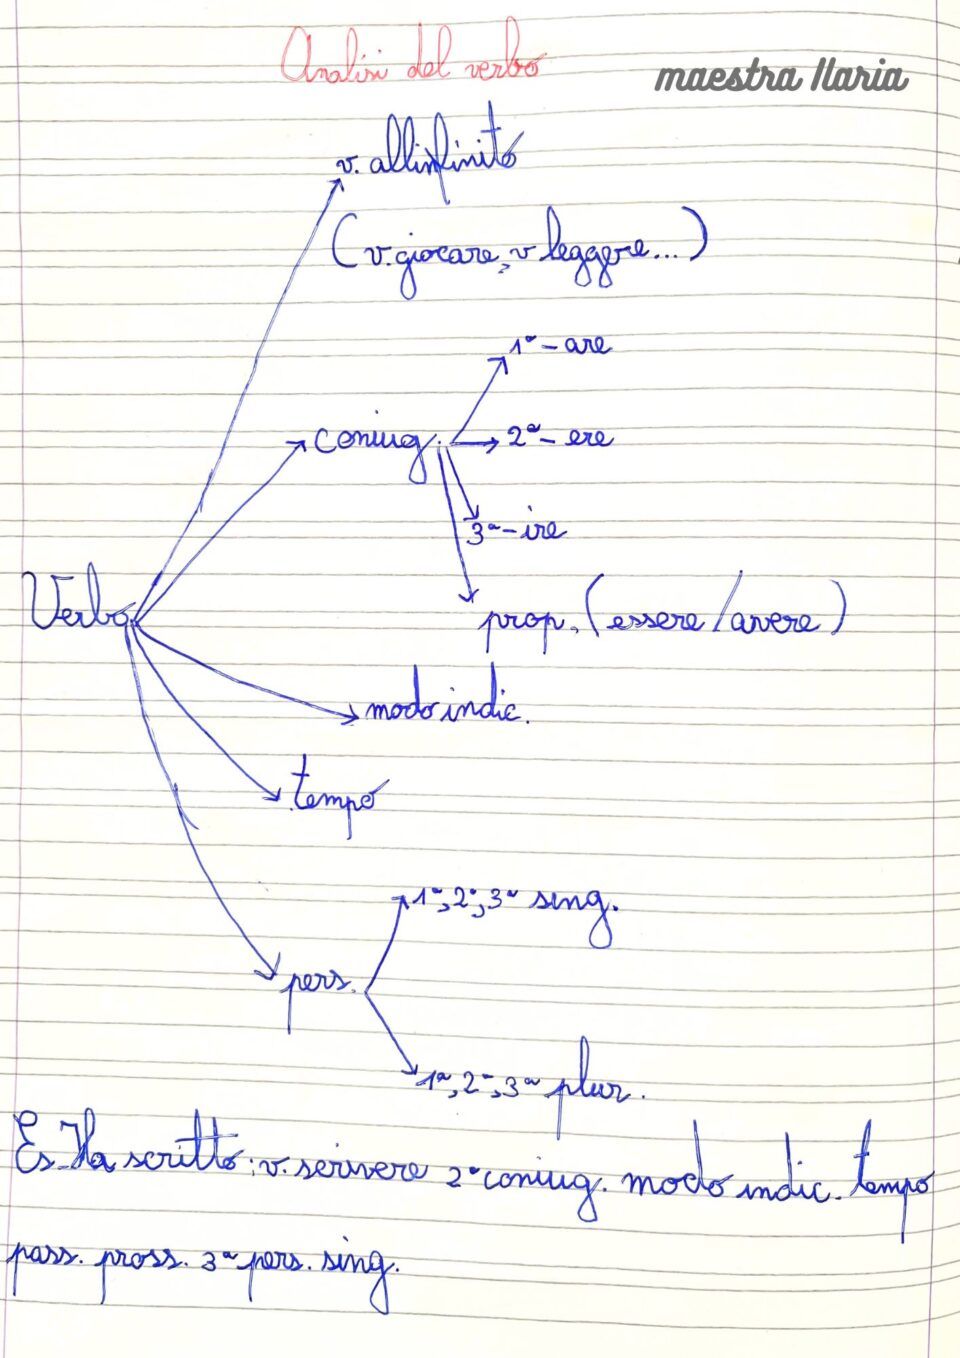 Analisi del verbo
maestra Ilaria
v. all'infinito
(v. giocare, v leggere...)
1ª - are
coniug.
2ª - ere
3ª - ire
Verbo
prop. (essere/avere)
modo indic.
tempo
1ª, 2ª, 3ª sing.
pers.
1ª, 2ª, 3ª plur.
Es. Ha scritto: v. scrivere 2ª coniug. modo indic. tempo
pass. pross. 3ª pers. sing.